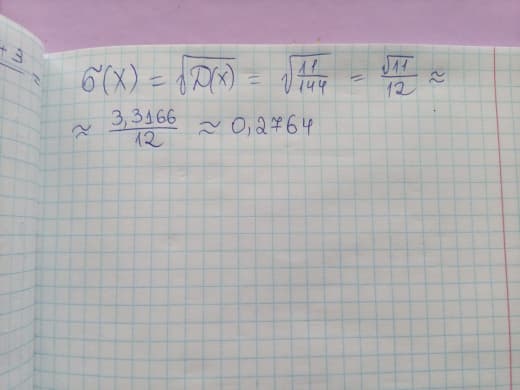 + 3 =
σ(X) = √D(X) = √11/144 = √11/12 ≈
≈ 3,3166/12 ≈ 0,2764